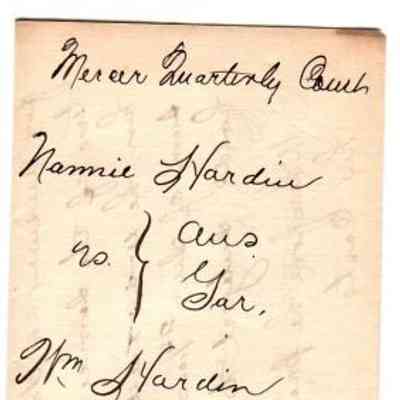 Mercer Quarterly Court
Nannie Hardin
vs. } Ans.
Gar.
Wm Hardin